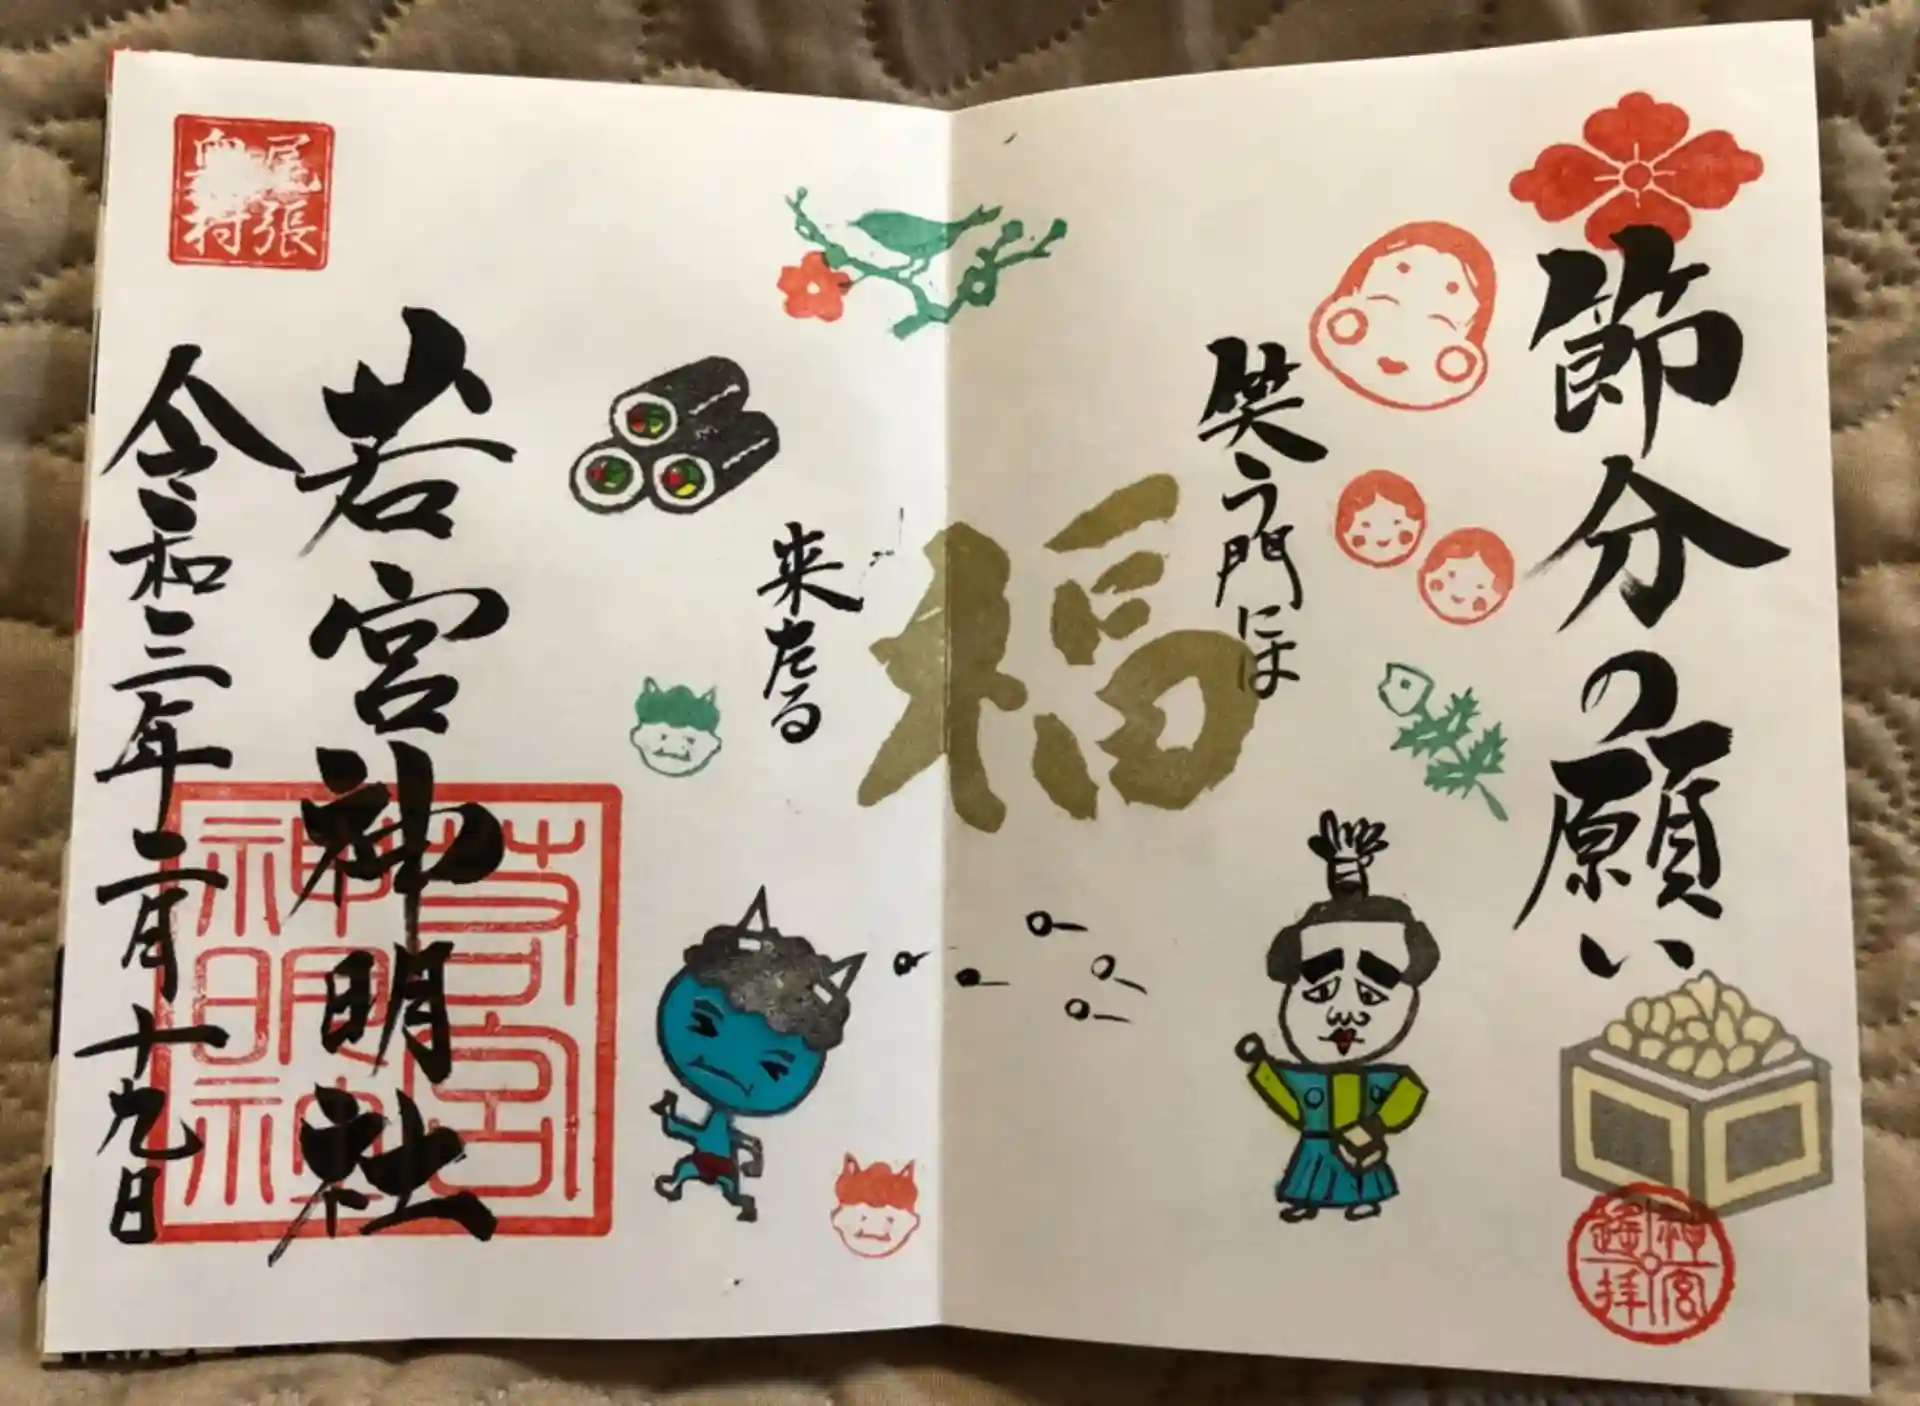 節分の願い
笑う門には
福
来たる
若宮神明社
令和三年二月十九日
尾張
神宮
遥拝
若宮
神明社